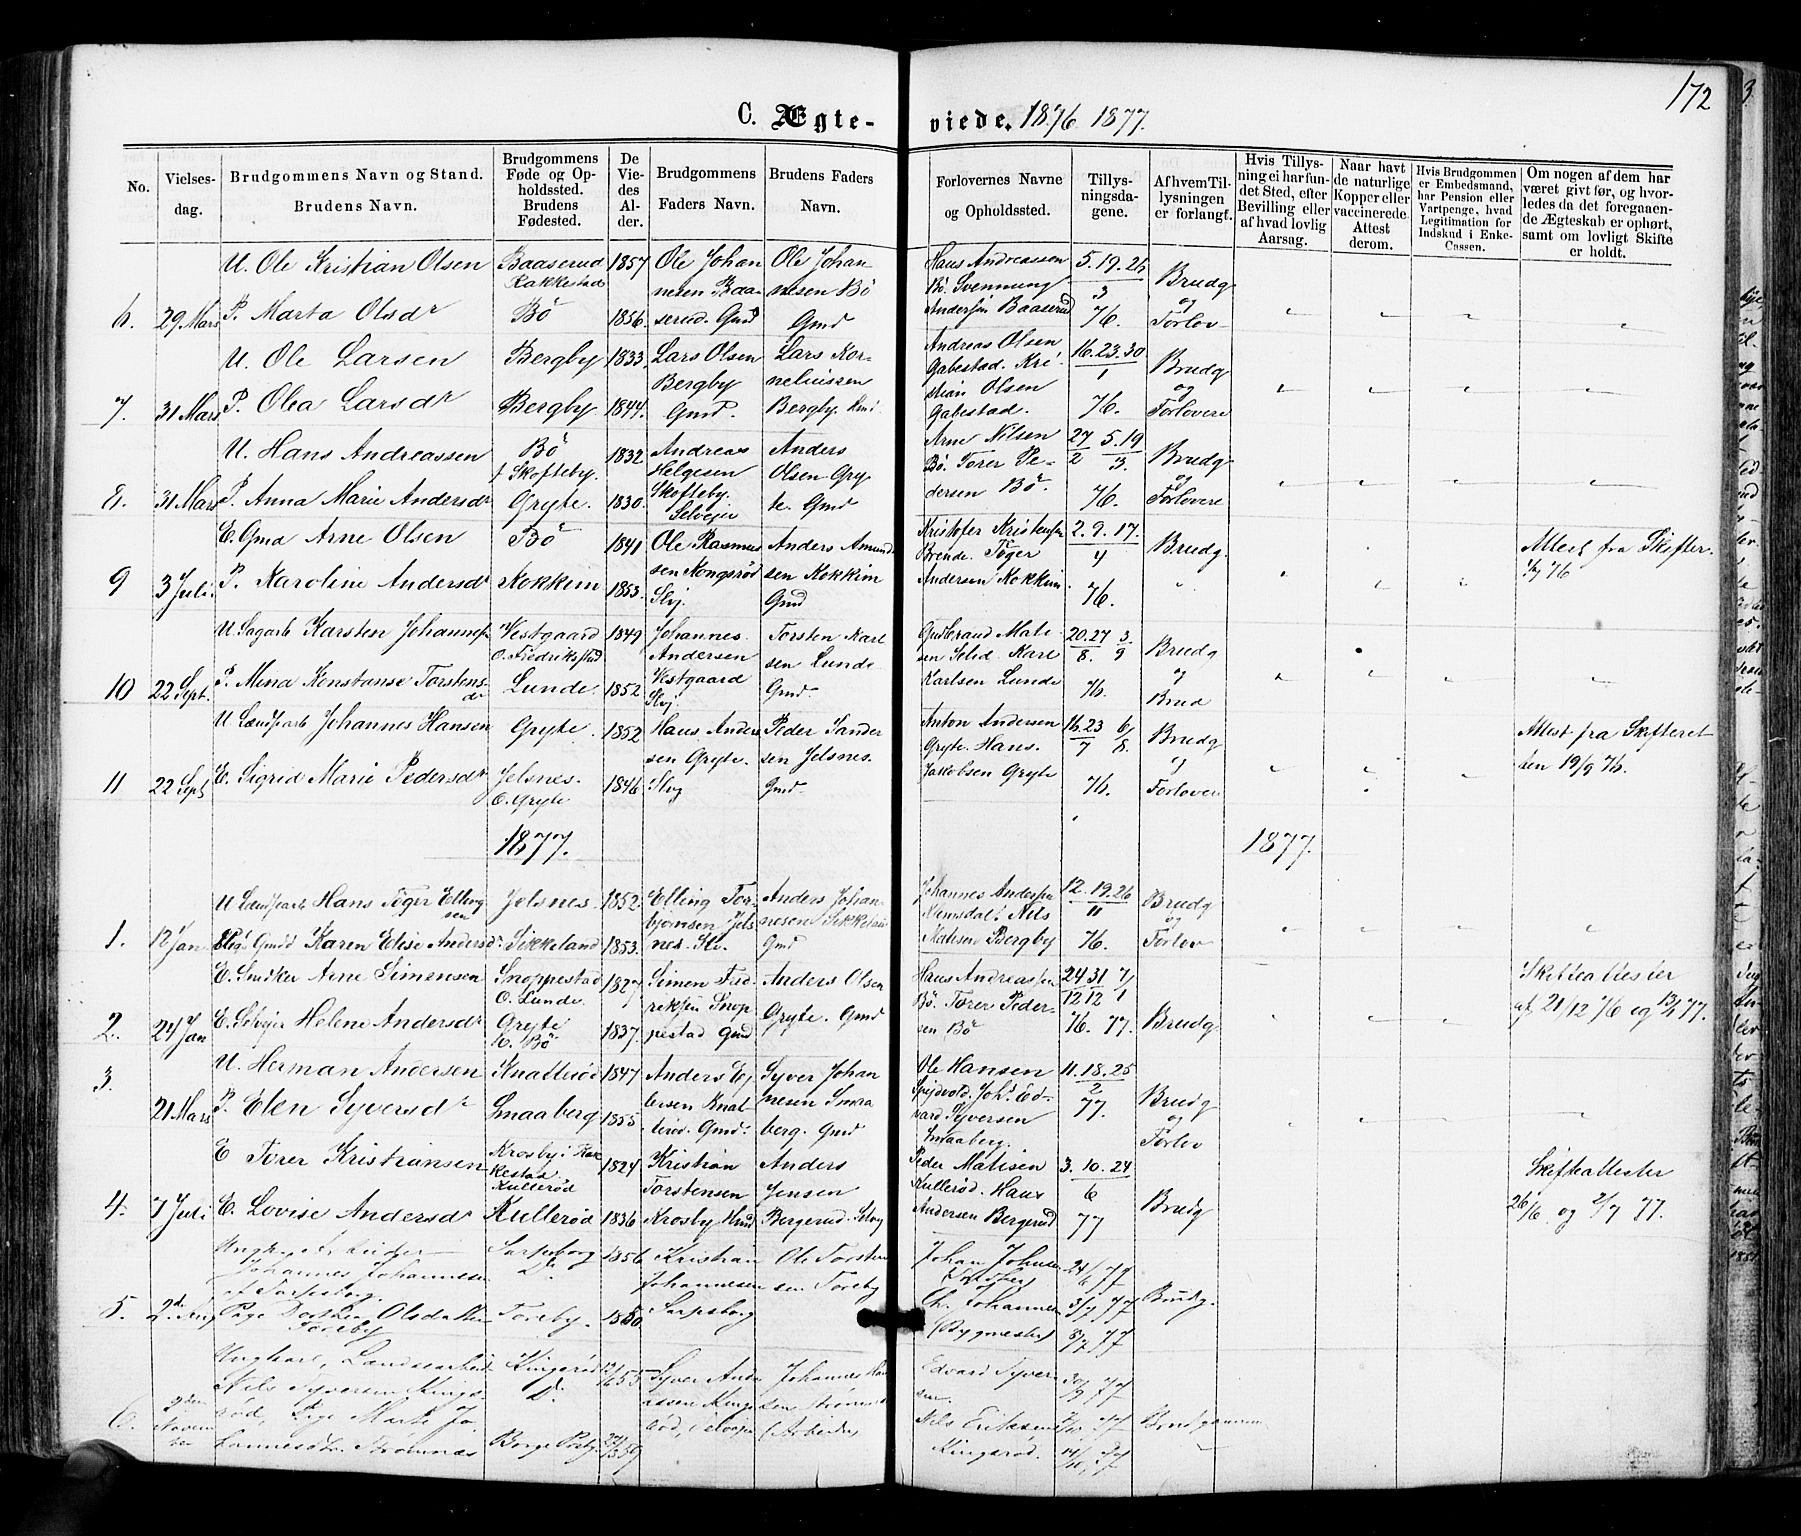 172
C. Ægte-
viede. 1876 1877.
No.
Vielses-
dag.
Brudgommens Navn og Stand.
Brudens Navn.
Brudgommens
Føde og Op-
holdssted.
Brudens
Fødested.
De
Vie-
des
Al-
der.
Brudgommens
Faders Navn.
Brudens Faders
Navn.
Forlovernes Navne
og Opholdssted.
Tillys-
ningsda-
gene.
Af hvem Til-
lysningen
er forlangt.
Hvis Tillys-
ning ei har fun-
det Sted, efter
Bevilling eller
af hvad lovlig
Aarsag.
Naar havt
de naturlige
Kopper eller
vaccinerede
Attest
derom.
Hvis Brudgommen
er Embedsmand,
har Pension eller
Vartpenge, hvad
Legitimation for
Indskud i Enke-
Cassen.
Om nogen af dem har
været givt før, og hvor-
ledes da det foregaaen-
de Ægteskab er ophørt,
samt om lovligt Skifte
er holdt.
6. 29 Mars
U. Ole Kristian Olsen
P. Marta Olsdr
Baaserud
Rakkestad
Bö
1857
1856.
Ole Johan
nesen Baa-
serud. Gmd
Ole Johan-
nesen Bö
Gmd
Hans Andreassen
Bö. Svennung
Andersen Baaserud
5. 19. 26
3
76.
Brudg
og
Forlov-
7. 31 Mars
U. Ole Larsen
P. Olea Larsdr
Bergby
Bergby
1833
1844.
Lars Olsen
Bergby
Gmd.
Lars Kor-
neliussen
Bergby. Gmd
Andreas Olsen
Gabestad. Kri-
stian Olsen
Gabestad.
16. 23. 30
1
76.
Brudg
og
Forlovere
8. 31 Mars
U. Hans Andreassen
P. Anna Marie Andersdr
Bö
f Skofteby.
Gryte.
1832
1830.
Andreas
Helgesen
Skofteby.
Selvejer
Anders
Olsen Gry
te. Gmd
Arne Nilsen
Bö. Torer Pe-
dersen Bö.
27 5. 19
2 3.
76.
Brudg
og
Forlovere
9 3 Juli
E. Gmd Arne Olsen
P. Karoline Andersdr
Bö
Kokkim
1841
1853.
Ole Rasmus
sen Kongsrød
Slvj.
Anders Amund
sen Kokkim
Gmd
Kristofer Kristensen
Brende. Töger
Andersen Kokkim
2. 9. 17.
4
76.
Brudg.
Attest fra Skifter.
10 22 Sept.
U. Sagarb Karsten Johannesen
P. Mina Konstanse Torstens-
dr
Vestgaard
O. Fredrikstad
Lunde.
1849
1852
Johannes
Andersen
Vestgaard
Slvj.
Torsten Karl
sen Lunde
Gmd.
Gudbrand Mati-
sen Karl
Karlsen Lunde
20. 27 3
8. 9
76.
Brudg
og
Brud
11 22 Sept
U Landarb Johannes Hansen
E. Sigrid Marie Pedersdr
Gryte.
Jelsnes.
O. Gryte
1852
1846
Hans Anders
sen Gryte.
Slvj
Peder Sander
sen Jelsnes.
Gmd.
Anton Andersen
Gryte. Hans.
Jakobsen Gryte
16. 23 6
7 8
76.
Brudg
og
Forlover
Attest fra Skifteret
den 19/9 76.
1877.
1877.
1. 12 Jan
U Landarb Hans Töger Elling
sen
Karen Elise Andersdr
Jelsnes.
Sikkeland
1852.
1853.
Elling Tor-
björnsen Jels
nes. Slv.
Anders Johan-
nesen Sikkeland
Gmd
Johannes Andersen
Nils
Matisen Bergby
12. 19. 26
11
76.
Brudg
og
Forlov
2. 24 Jan
E. Smdker Arne Simensen
E. Selvejer Helene Andersdr
Snoppestad
O. Lunde.
Gryte
O. Bö
1827
1837.
Simen Fred-
riksen Snop-
pestad Gmd
Anders Olsen
Gryte. Gmd
Hans Andreassen
Bö. Torer Peder-
sen Bö
24 31 7
12 12 1
76. 77.
Brudg
Skifteattester
af 21/12 76 og 77.
3. 21 Mars
U. Herman Andersen
P. Elen Syversdr
Knatterød
Smaaberg
1847
1855.
Anders Ej
lersen Knat-
terød. Gmd.
Syver Johan
nesen Smaa
berg. Gmd
Ole Hansen
Spydvold. Johs Ed-
vard Syversen
Smaaberg.
11. 18. 25
2
77.
Brudg
og
Forlov
4. 7 Juli
E Torer Kristiansen
E. Lovise Andersdr
Krosby i Rak-
kestad.
Kullerød
Kullerød
1824
1836
Kristian
Torstensen
Krosby Gmd
Anders
Jensen
Bergerud. Selvj
Peder Matisen
Kullerød. Hans
Andersen Bergerud
3. 10. 24
6
77
Brudg
Skifteattester
26/6 og 2/7 77.
5. 2 Aug
Ungk. Arbeider
Johannes Johannesen
af Sarpsborg.
Pige Dorthea Olsdatter
Toreby
Sarpsborg
D.
Toreby.
1856
1850
Kristian
Johannesen
Sarpsborg
Ole Torsten
sen Toreby
Johan Johnsen
Ch. Johannesen
(Bygmester)
24/6 77
3/7 77
8/7 77
Brudg.
6. Novem
ber
Ungkarl, Landarbeid
Nils Syversen Kings-
rød, Pige Marte Jo-
hannesdtr Strömnæs
Kingsrød
D.
Borge Pstg
55
59
Syver And-
Kings
rød, Selvejer
Johannes Han
sen Strömnæs
(Arbeider)
Edvard Syver
sen
Nils Eriksen
Kingsrød.
30/9 77
7/10 77
14/10 77
Brudgommen